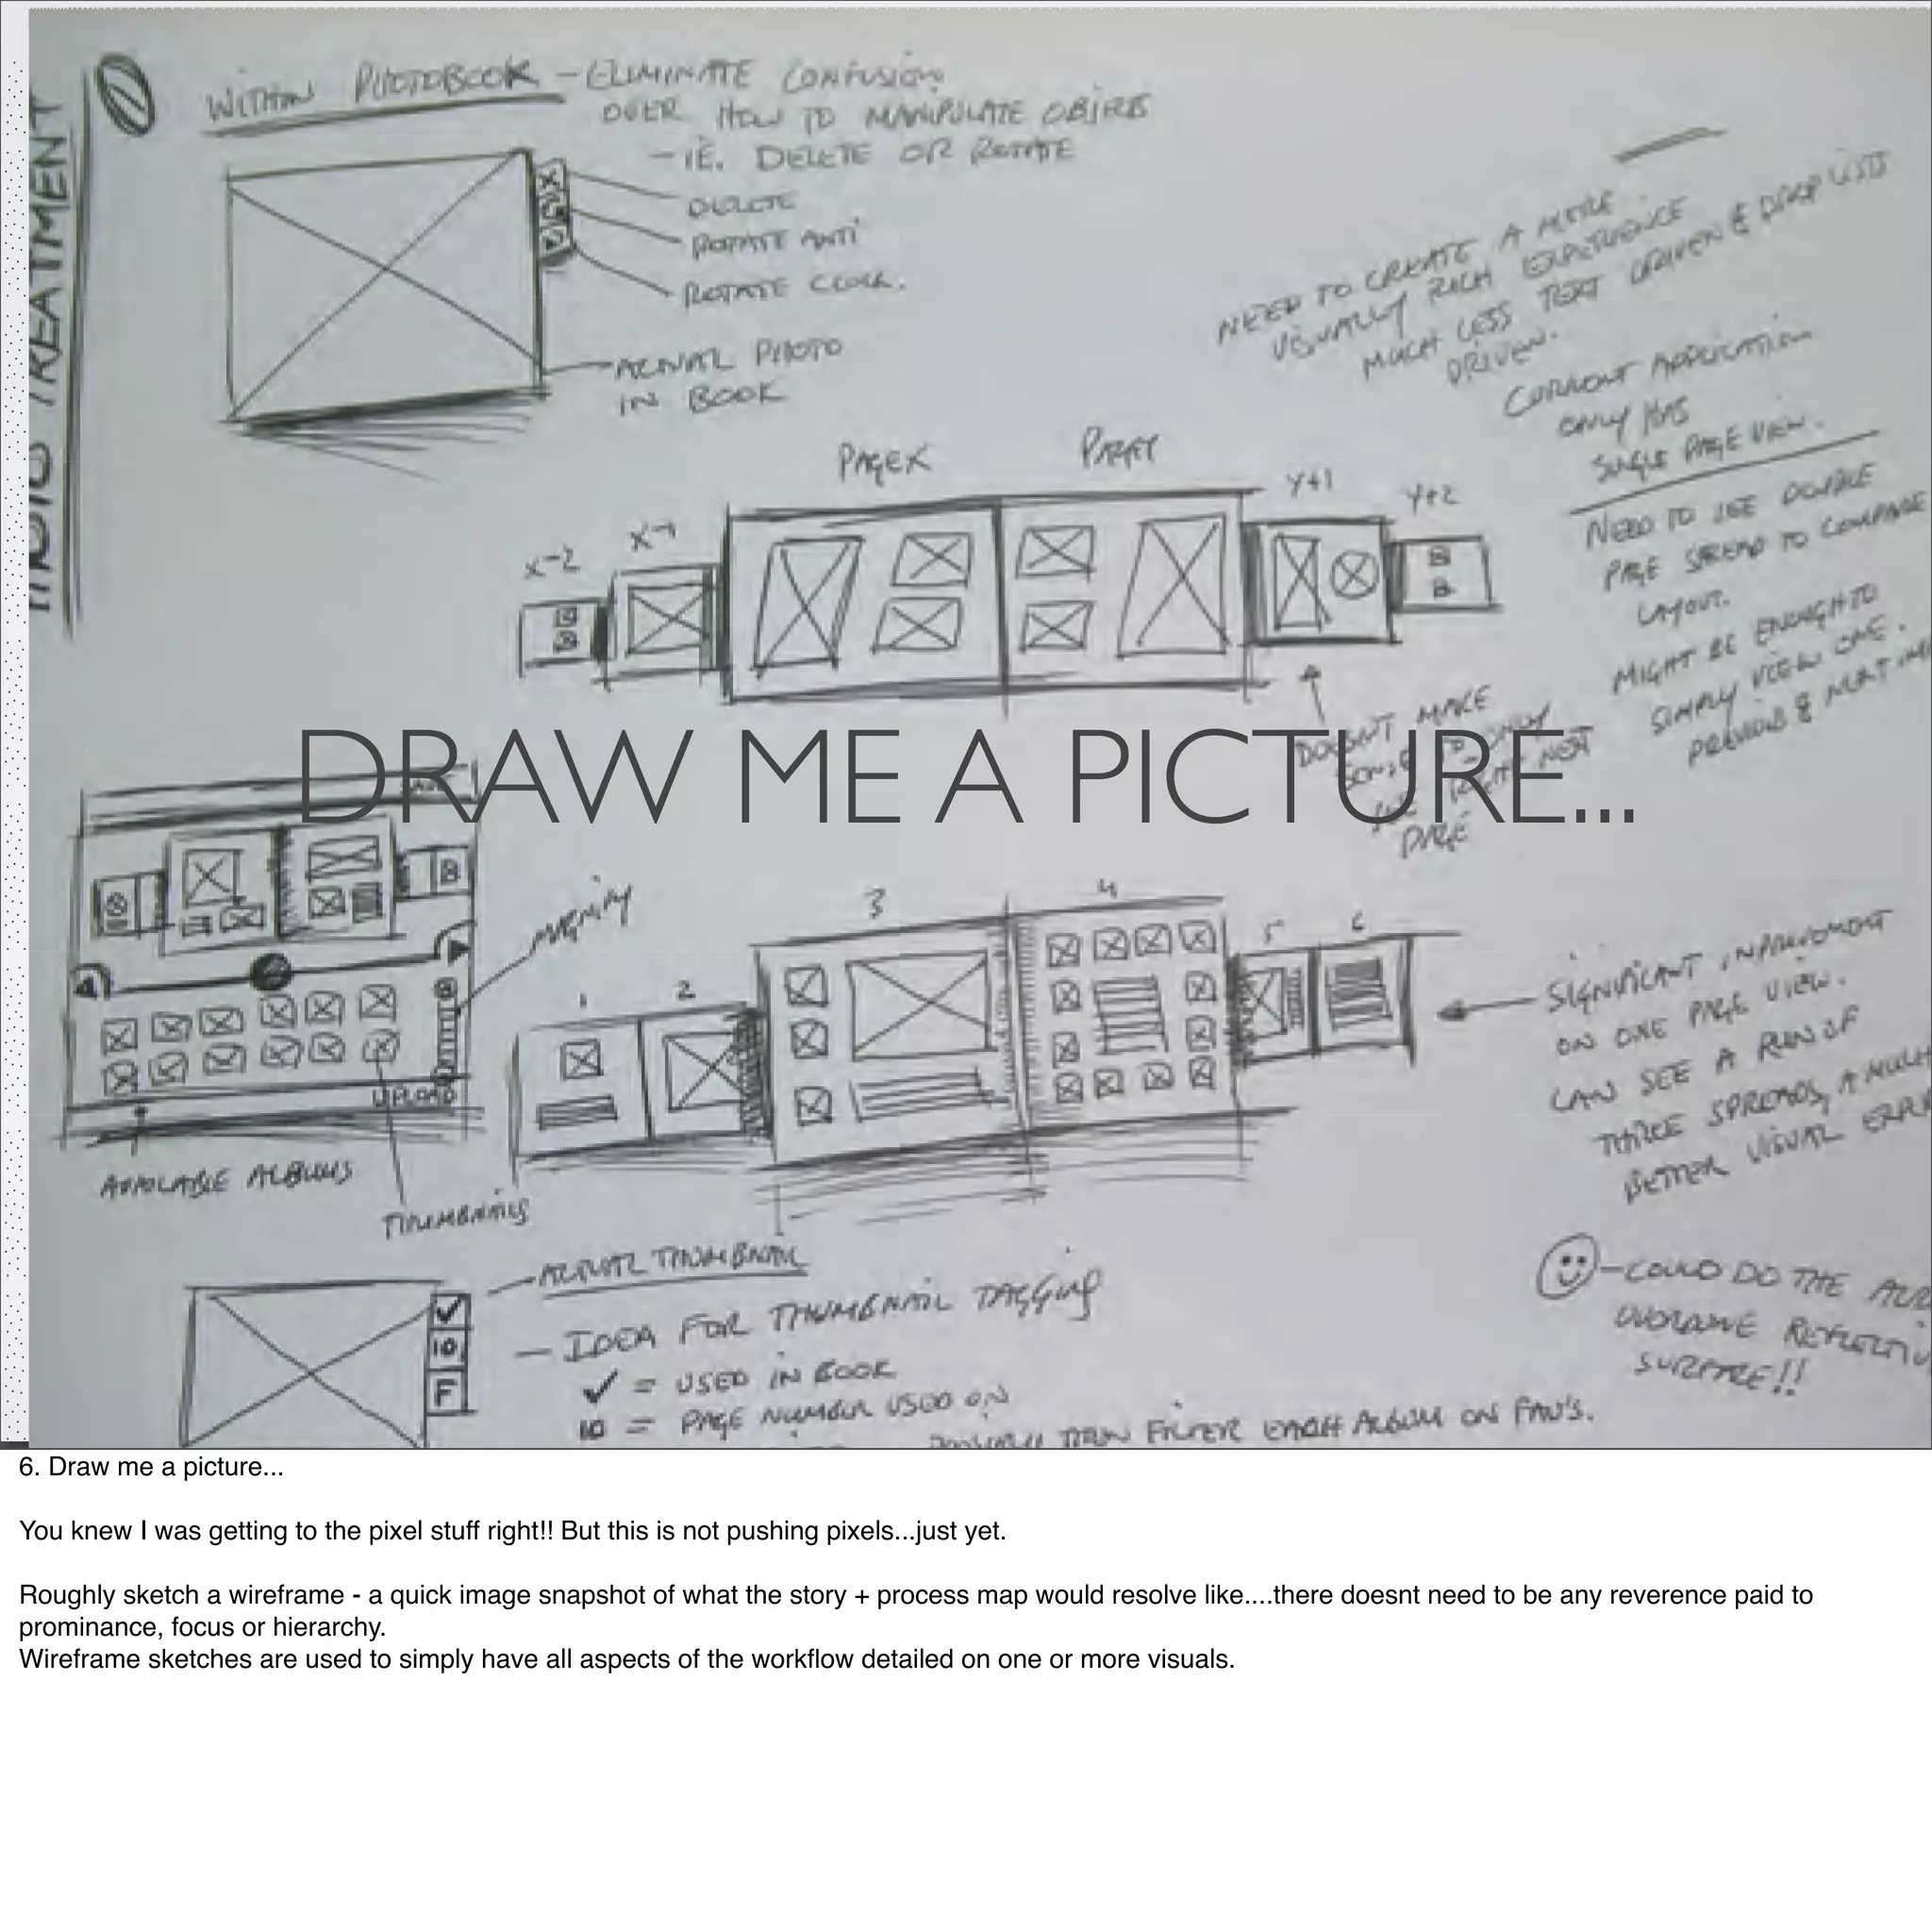 TREATMENT
WITHIN PHOTOBOOK - ELIMINATE CONFUSION
OVER HOW TO MANIPULATE OBJECTS
- IE. DELETE OR ROTATE
DELETE
ROTATE ANTI
ROTATE CLOCK.
ACTUAL PHOTO
IN BOOK
NEED TO CREATE A MORE
VISUALLY RICH EXPERIENCE
MUCH LESS TEXT DRIVEN & DROP LISTS
DRIVEN.
CURRENT APPLICATION
ONLY HAS
SINGLE PAGE VIEW.
NEED TO SEE DOUBLE
PAGE SPREAD TO COMPARE
LAYOUT.
MIGHT BE ENOUGH TO
SIMPLY VIEW ONE.
PREVIOUS & NEXT
PAGE X
PAGE Y
X-2
X-1
Y+1
Y+2
DOESNT MAKE
PAGE
DRAW ME A PICTURE...
UPLOAD
AVAILABLE ALBUMS
THUMBNAILS
1
2
3
4
5
6
SIGNIFICANT IMPROVEMENT
ON ONE PAGE VIEW.
CAN SEE A RUN OF
THREE SPREADS, A MUCH
BETTER VISUAL
ACTUAL THUMBNAIL
- IDEA FOR THUMBNAIL TAGGING
✓ = USED IN BOOK
10 = PAGE NUMBER USED ON
✓
10
F
THEN FILTER EACH ALBUM ON FAV'S.
- COULD DO THE
SURFACE!!
6. Draw me a picture...
You knew I was getting to the pixel stuff right!! But this is not pushing pixels...just yet.
Roughly sketch a wireframe - a quick image snapshot of what the story + process map would resolve like....there doesnt need to be any reverence paid to
prominance, focus or hierarchy.
Wireframe sketches are used to simply have all aspects of the workflow detailed on one or more visuals.